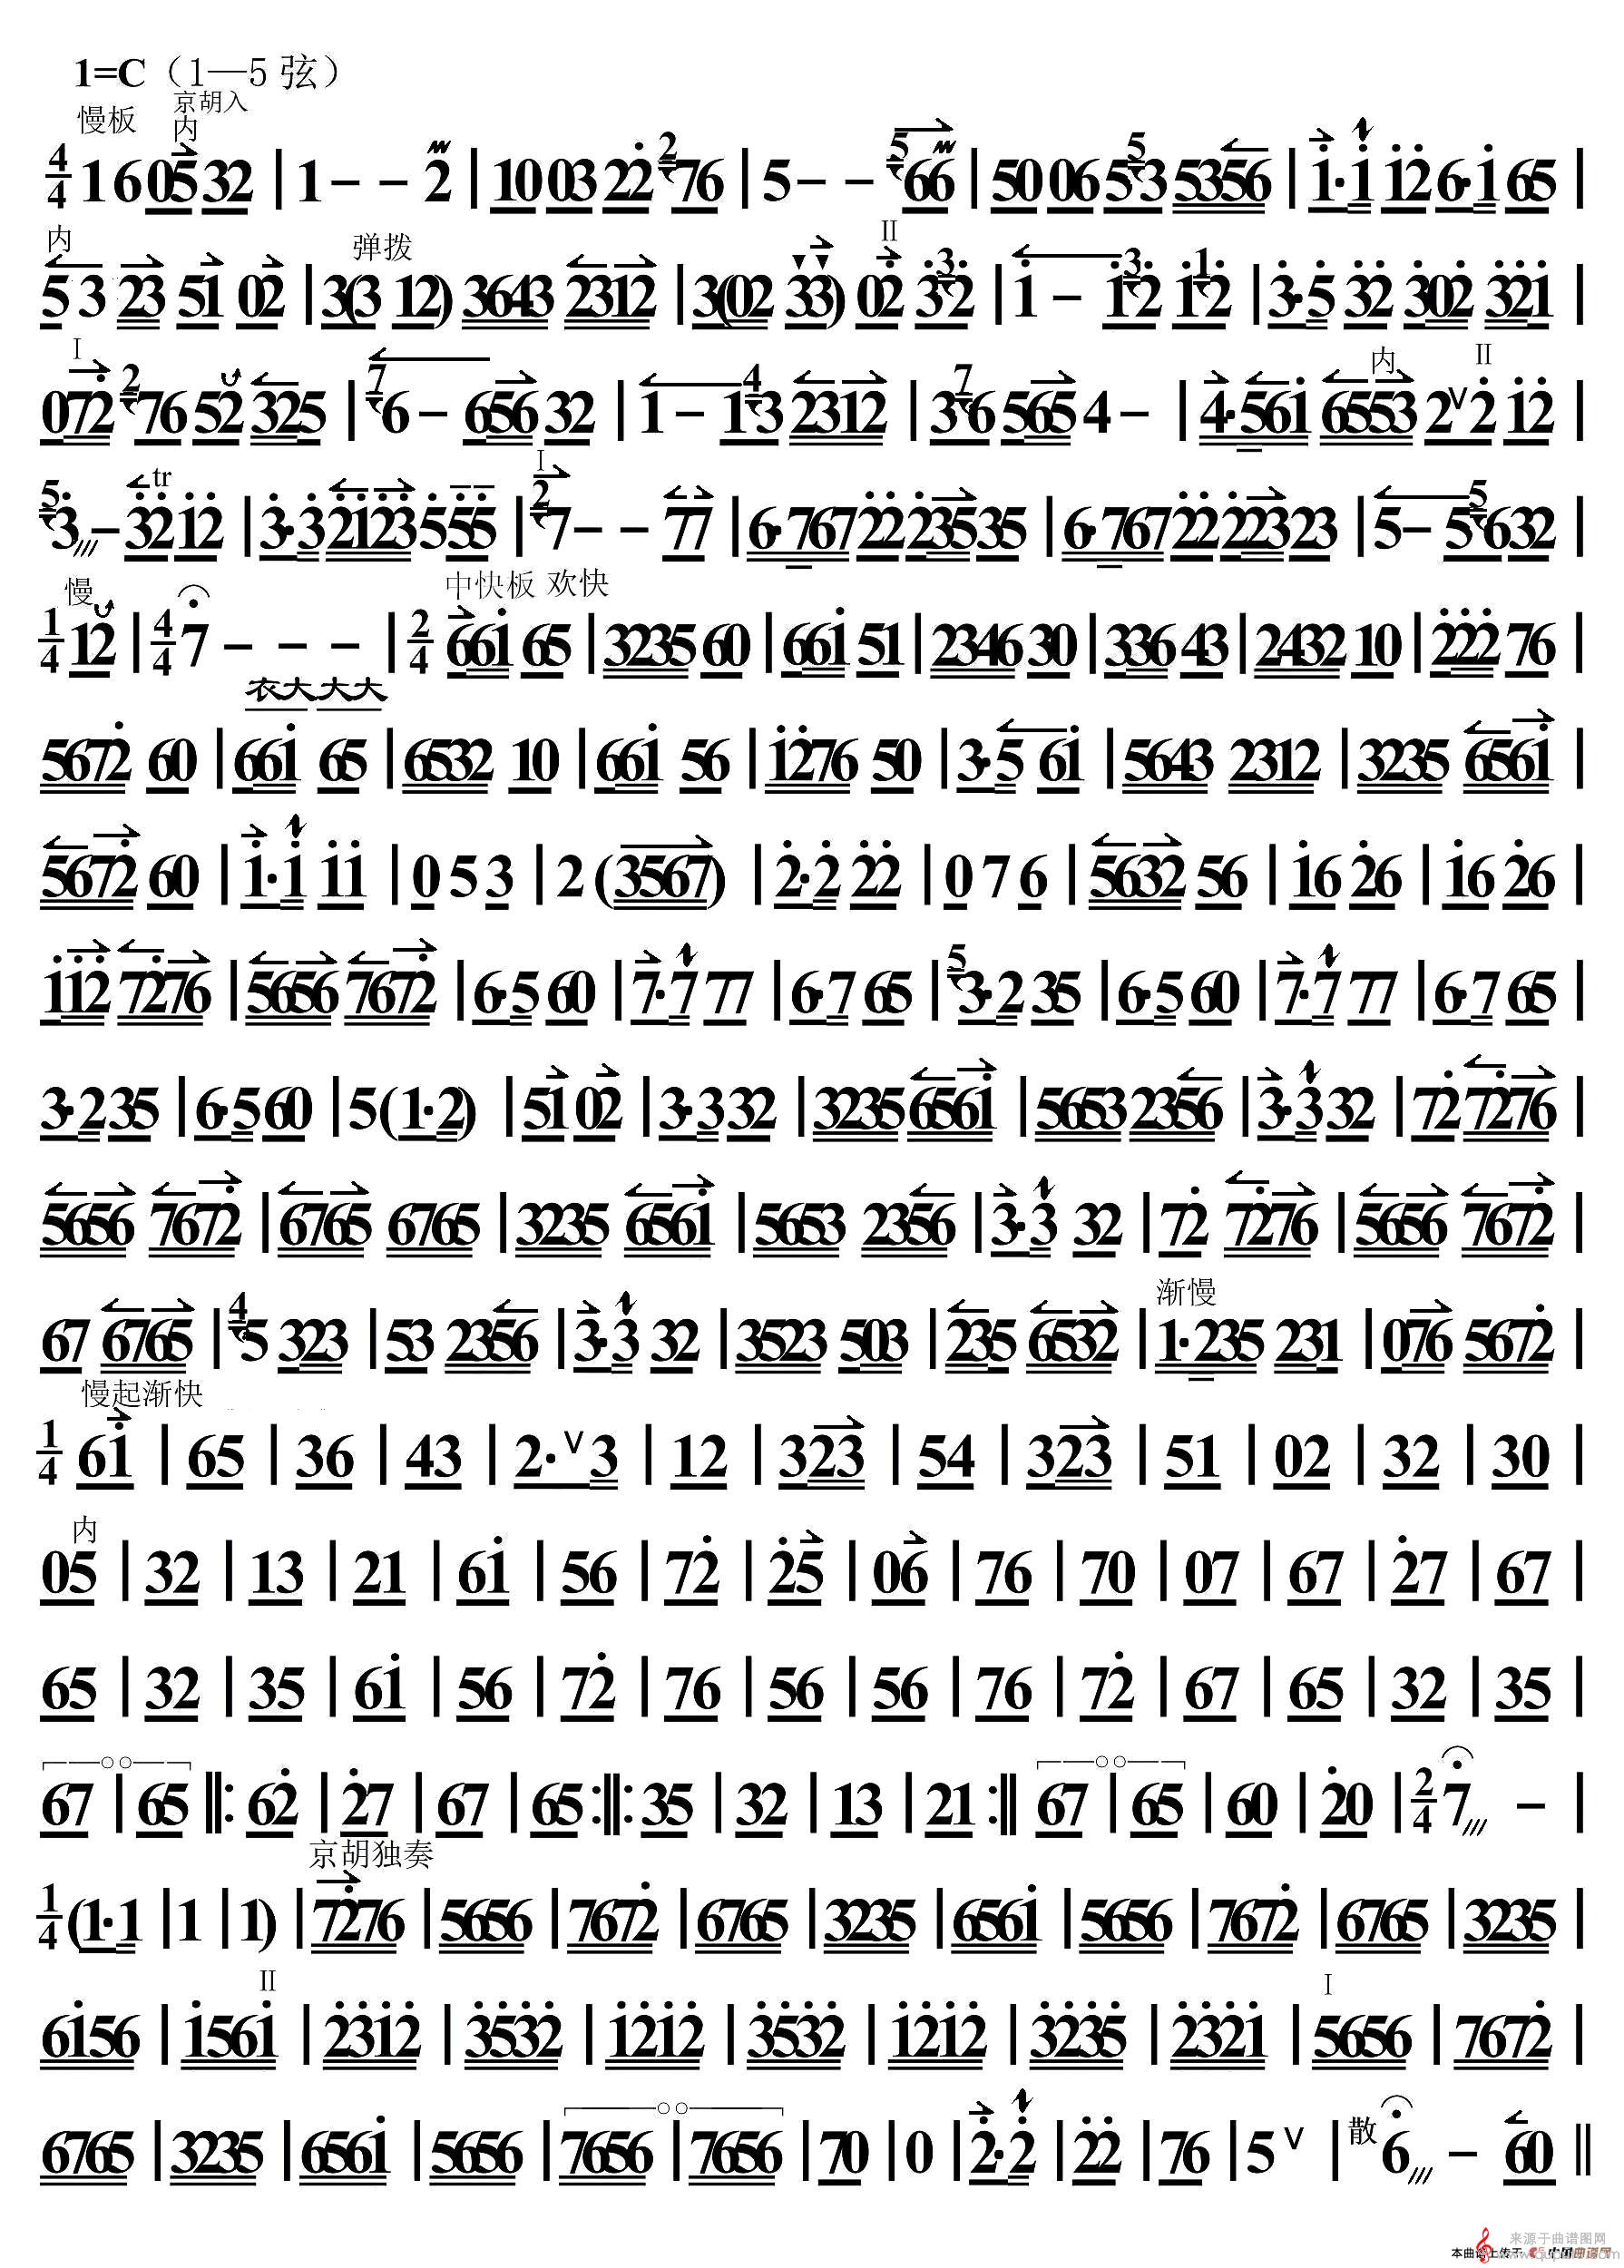 1=C（1—5 弦）
慢板 京胡入
内
4/4 1 6 05 32 | 1 - - 2 | 10 03 22̇ ²76 | 5 - - ⁵66 | 50 06 5⁵3 5356 | 1̇·1̇ 1̇2̇ 6·1̇ 65 |
内 弹拨 II
5 3 23 51 02 | 3(3 12) 3643 2312 | 3(02 33) 02̇ 3̇³2̇ | 1̇ - 1̇³2̇ 1̇¹2̇ | 3̇·5̇ 3̇2̇ 3̇02̇ 3̇2̇1̇ |
I 内 II
072̇ ²76 52 325 | ⁷6 - 656 32 | 1 - 1⁴3 2312 | 3⁷6 565 4 - | 4·561̇ 6553 2 ∨ 2̇ 1̇2̇ |
tr I
⁵3̇ - 3̇2̇ 1̇2̇ | 3̇·3̇ 2̇1̇2̇3̇ 5̇ 5̇5̇5̇ | ²7 - - 77 | 6·767 2̇2̇ 2̇35 35 | 6·767 2̇2̇ 2̇23 23 | 5 - 5⁵6 32 |
慢 中快板 欢快
1/4 12 | 4/4 7 - - - | 2/4 661̇ 65 | 3235 60 | 661̇ 51 | 2346 30 | 336 43 | 2432 10 | 2̇2̇2̇ 76 |
衣大大大
5672̇ 60 | 661̇ 65 | 6532 10 | 661̇ 56 | 1̇2̇76 50 | 3·5 61̇ | 5643 2312 | 3235 6561̇ |
5672̇ 60 | 1̇·1̇ 1̇1̇ | 0 5 3 | 2 (3567) | 2̇·2̇ 2̇2̇ | 0 7 6 | 5632 56 | 1̇6 2̇6 | 1̇6 2̇6 |
1̇1̇2̇ 72̇76 | 5656 7672̇ | 6·5 60 | 7·7 77 | 6·7 65 | ⁵3·2 35 | 6·5 60 | 7·7 77 | 6·7 65 |
3·2 35 | 6·5 60 | 5 (1·2) | 51 02 | 3·3 32 | 3235 6561̇ | 5653 2356 | 3·3 32 | 72̇ 72̇76 |
5656 7672̇ | 6765 6765 | 3235 6561̇ | 5653 2356 | 3·3 32 | 72̇ 72̇76 | 5656 7672̇ |
渐慢
67 6765 | ⁴5 323 | 53 2356 | 3·3 32 | 3523 503 | 235 6532 | 1·235 231 | 076 5672̇ |
慢起渐快
1/4 61̇ | 65 | 36 | 43 | 2· ∨ 3 | 12 | 323 | 54 | 323 | 51 | 02 | 32 | 30 |
内
05 | 32 | 13 | 21 | 61̇ | 56 | 72̇ | 2̇5 | 06 | 76 | 70 | 07 | 67 | 2̇7 | 67 |
65 | 32 | 35 | 61̇ | 56 | 72̇ | 76 | 56 | 56 | 76 | 72̇ | 67 | 65 | 32 | 35 |
67 | 65 ‖: 62̇ | 2̇7 | 67 | 65 :‖: 35 | 32 | 13 | 21 :‖ 67 | 65 | 60 | 2̇0 | 2/4 7 - |
京胡独奏
1/4 (1·1 | 1 | 1) | 72̇76 | 5656 | 7672̇ | 6765 | 3235 | 6561̇ | 5656 | 7672̇ | 6765 | 3235 |
II I
61̇56 | 1̇561̇ | 2̇3̇1̇2̇ | 3̇5̇3̇2̇ | 1̇2̇1̇2̇ | 3̇5̇3̇2̇ | 1̇2̇1̇2̇ | 3̇2̇3̇5̇ | 2̇3̇2̇1̇ | 5656 | 7672̇ |
6765 | 3235 | 6561̇ | 5656 | 7656 | 7656 | 70 | 0 | 2̇·2̇ | 2̇2̇ | 76 | 5 ∨ | 散 6 - 60 ‖
来源于曲谱图网